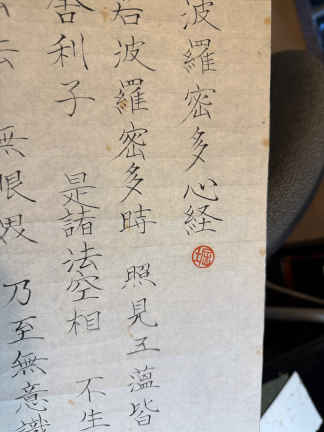 波羅密多心経
若波羅密多時 照見五蘊皆
舎利子 是諸法空相 不生
無眼界 乃至無意識